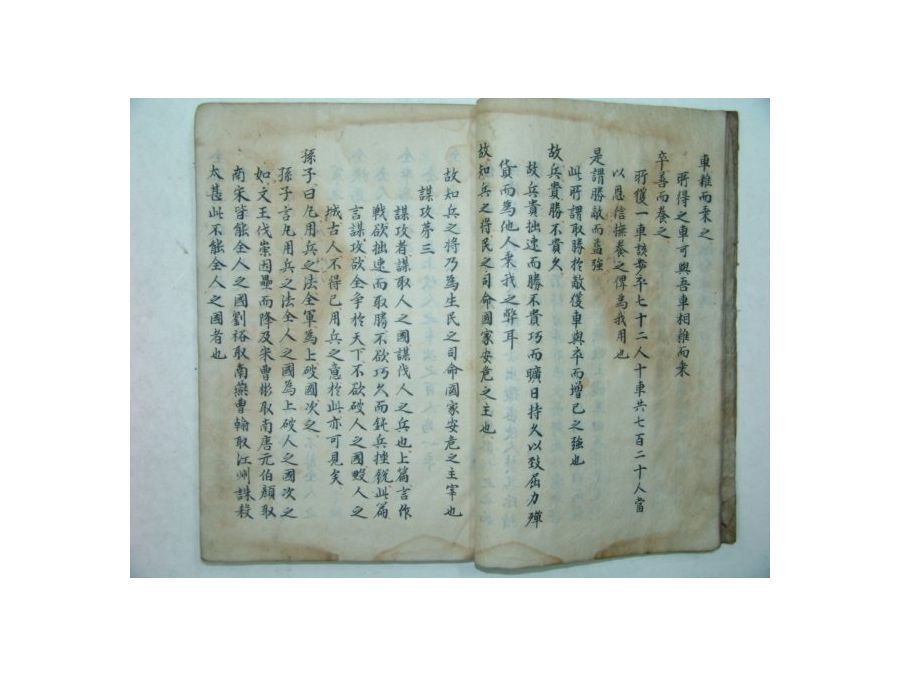 車雜而乘之
所得之車可與吾車相雜而乘
卒善而養之
所獲一車該步卒七十二人十車共七百二十人當
以恩信撫養之俾為我用也
是謂勝敵而益強
此所謂取勝於敵獲車與卒而增己之強也
故兵貴勝不貴久
故兵貴拙速而勝不貴巧而曠日持久以致屈力殫
貨而為他人乘我之弊耳
故知兵之將民之司命國家安危之主也
故知兵之將乃為生民之司命國家安危之主宰也
謀攻第三
謀攻者謀取人之國謀伐人之兵也上篇言作
戰欲拙速而取勝不欲巧久而鈍兵挫銳此篇
言謀攻欲全爭於天下不欲破人之國毀人之
城古人不得已用兵之意於此亦可見矣
孫子曰凡用兵之法全軍為上破國次之
孫子言凡用兵之法全人之國為上破人之國次之
如文王伐崇因壘而降及宋曹彬取南唐元伯顏取
南宋皆能全人之國劉裕取南燕曹翰取江州誅殺
太甚此不能全人之國者也